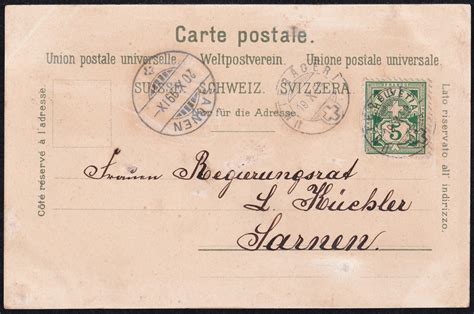 Carte postale.
Union postale universelle. Weltpostverein. Unione postale universale.
SUISSE. SCHWEIZ. SVIZZERA.
für die Adresse.
Côté réservé à l'adresse.
Lato riservato all' indirizzo.
SARNEN
HELVETIA
5
Frauen Regierungsrat
L. Küchler
Sarnen.